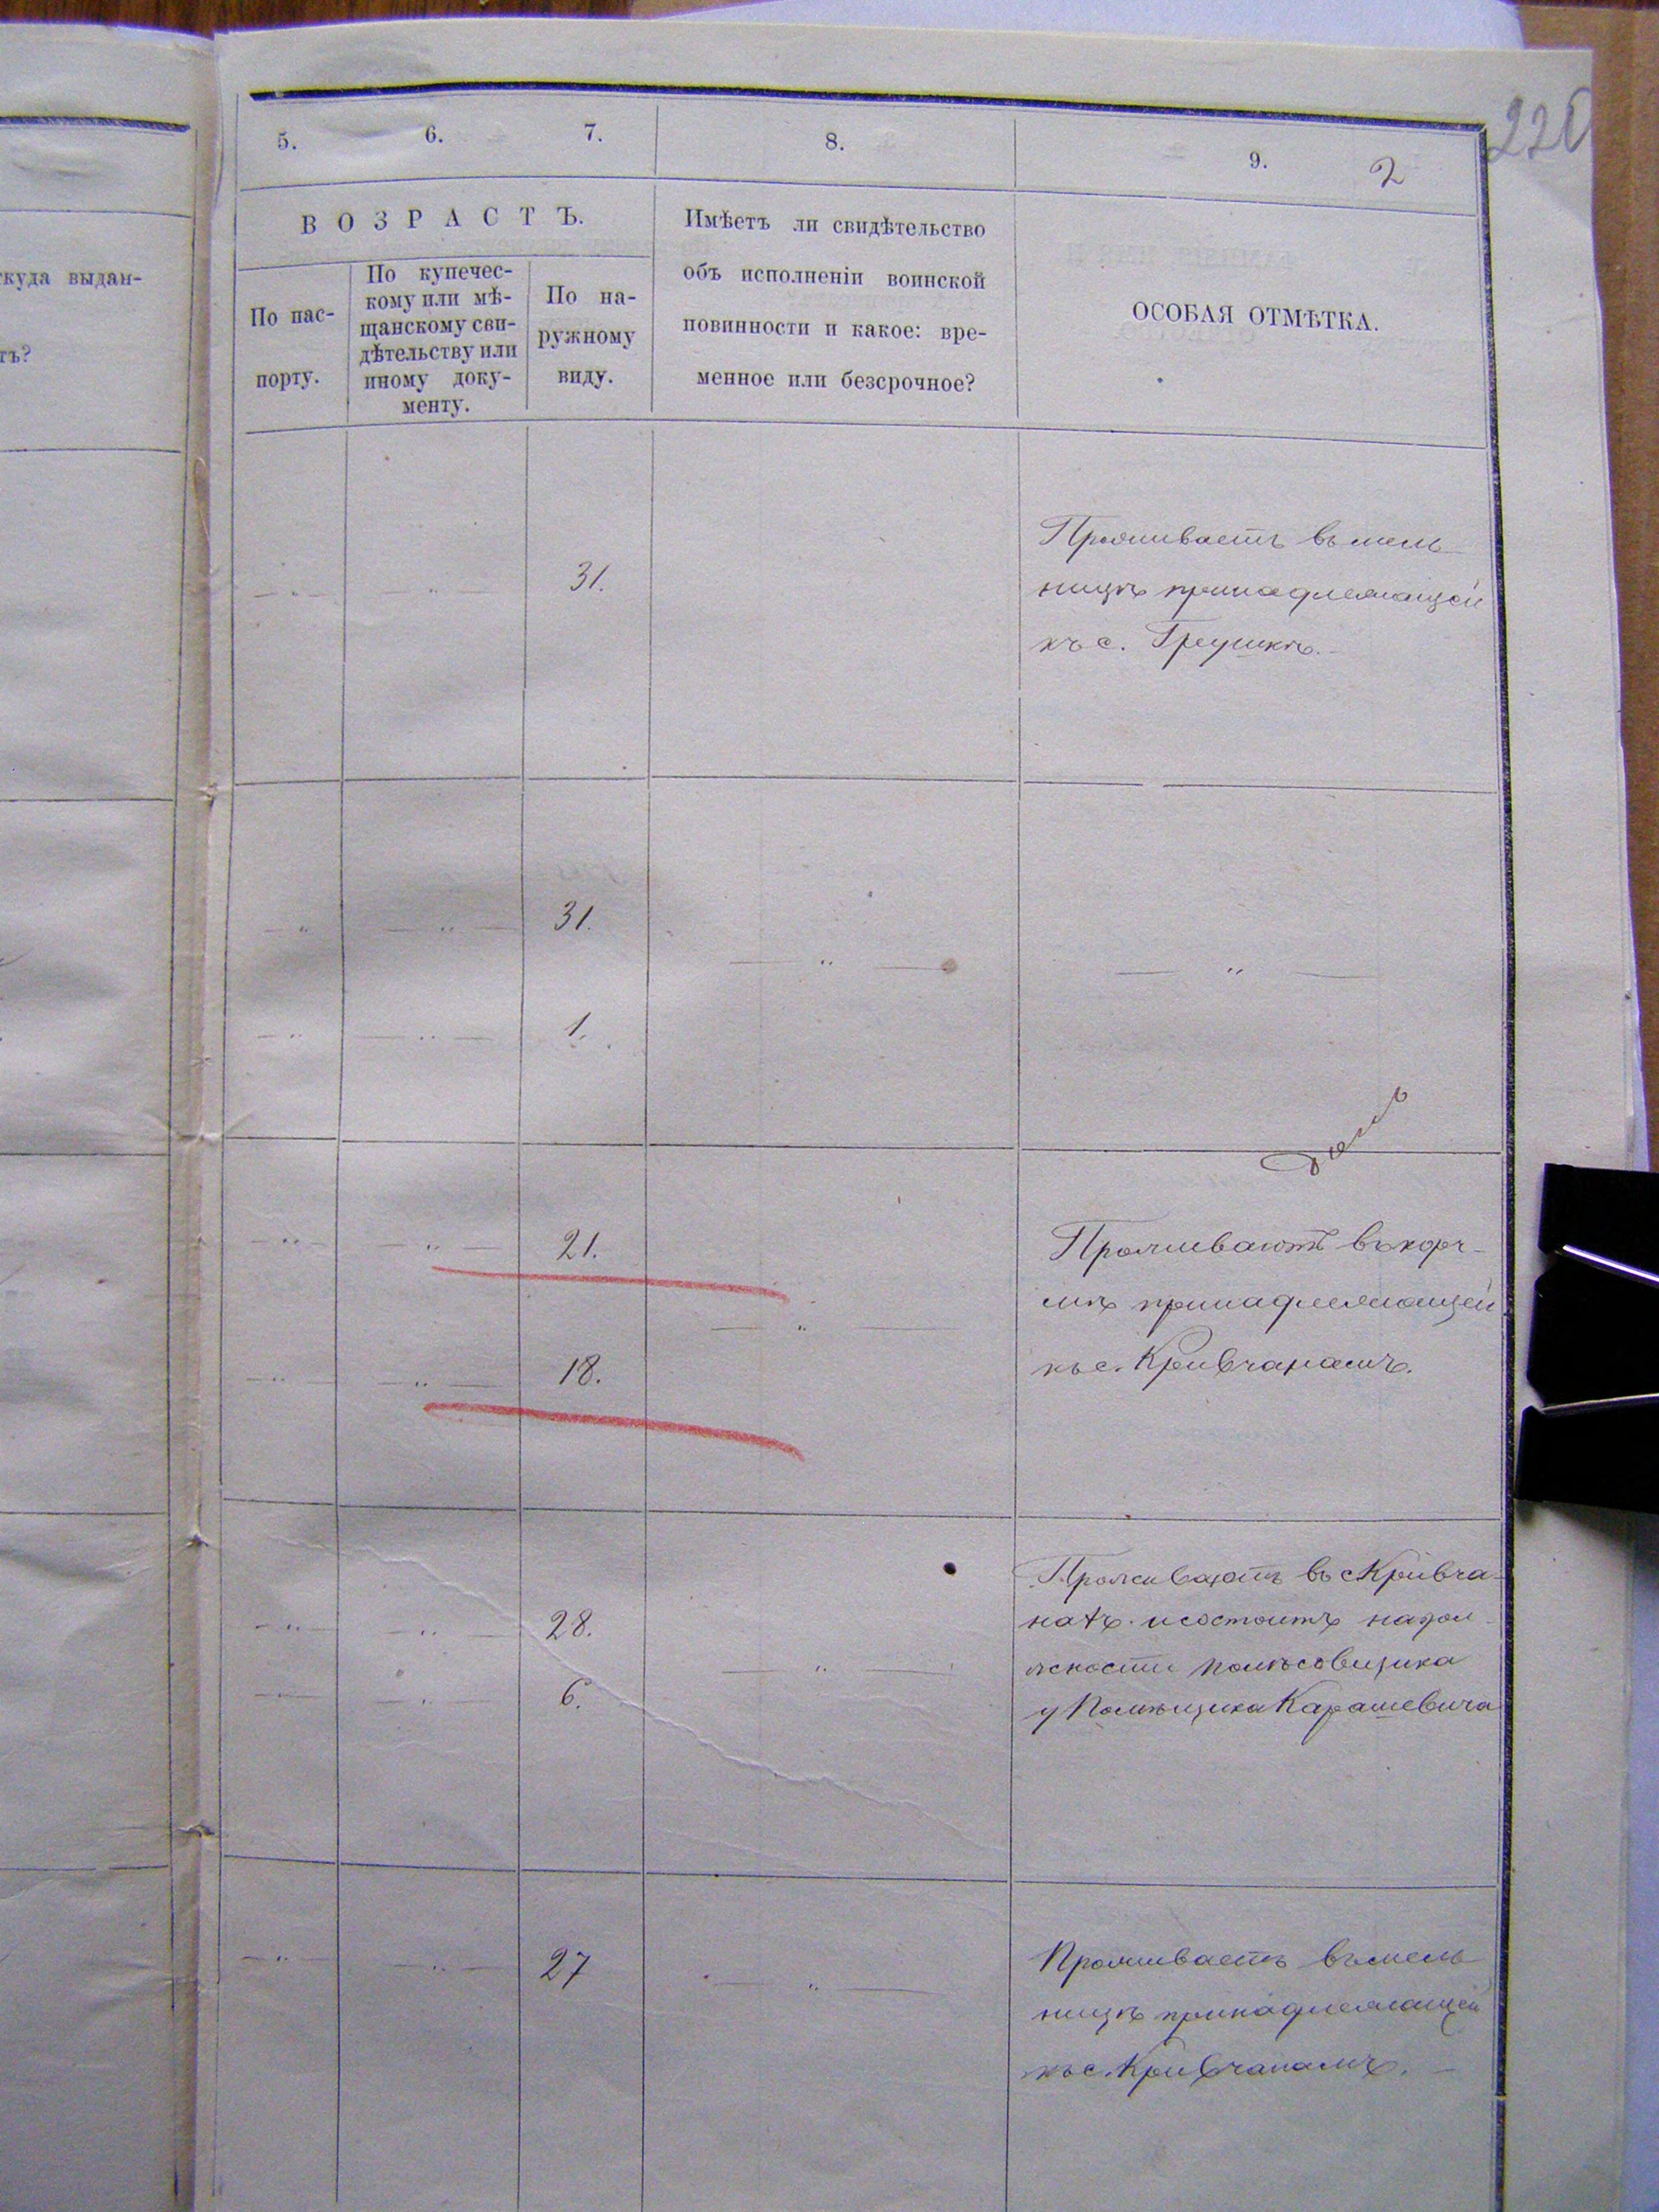 220
5.
6.
7.
8.
9.
2
ВОЗРАСТЪ.
Имѣетъ ли свидѣтельство
объ исполненіи воинской
повинности и какое: вре-
менное или безсрочное?
ОСОБАЯ ОТМѢТКА.
По пас-
порту.
По купечес-
кому или мѣ-
щанскому сви-
дѣтельству или
иному доку-
менту.
По на-
ружному
виду.
ткуда выдан-
тъ?
31.
Проживаетъ въ мель-
ницѣ принадлежащей
къ с. Грушкѣ.
31.
1.
21.
18.
Проживаютъ въ корч-
мѣ принадлежащей
къ с. Кривчанамъ.
28.
6.
Проживаютъ въ с Кривча-
нахъ и состоитъ на дол-
жности полѣсовщика
у Помѣщика Карашевича
27
Проживаетъ въ мель-
ницѣ принадлежащей
къ с. Кривчанамъ.